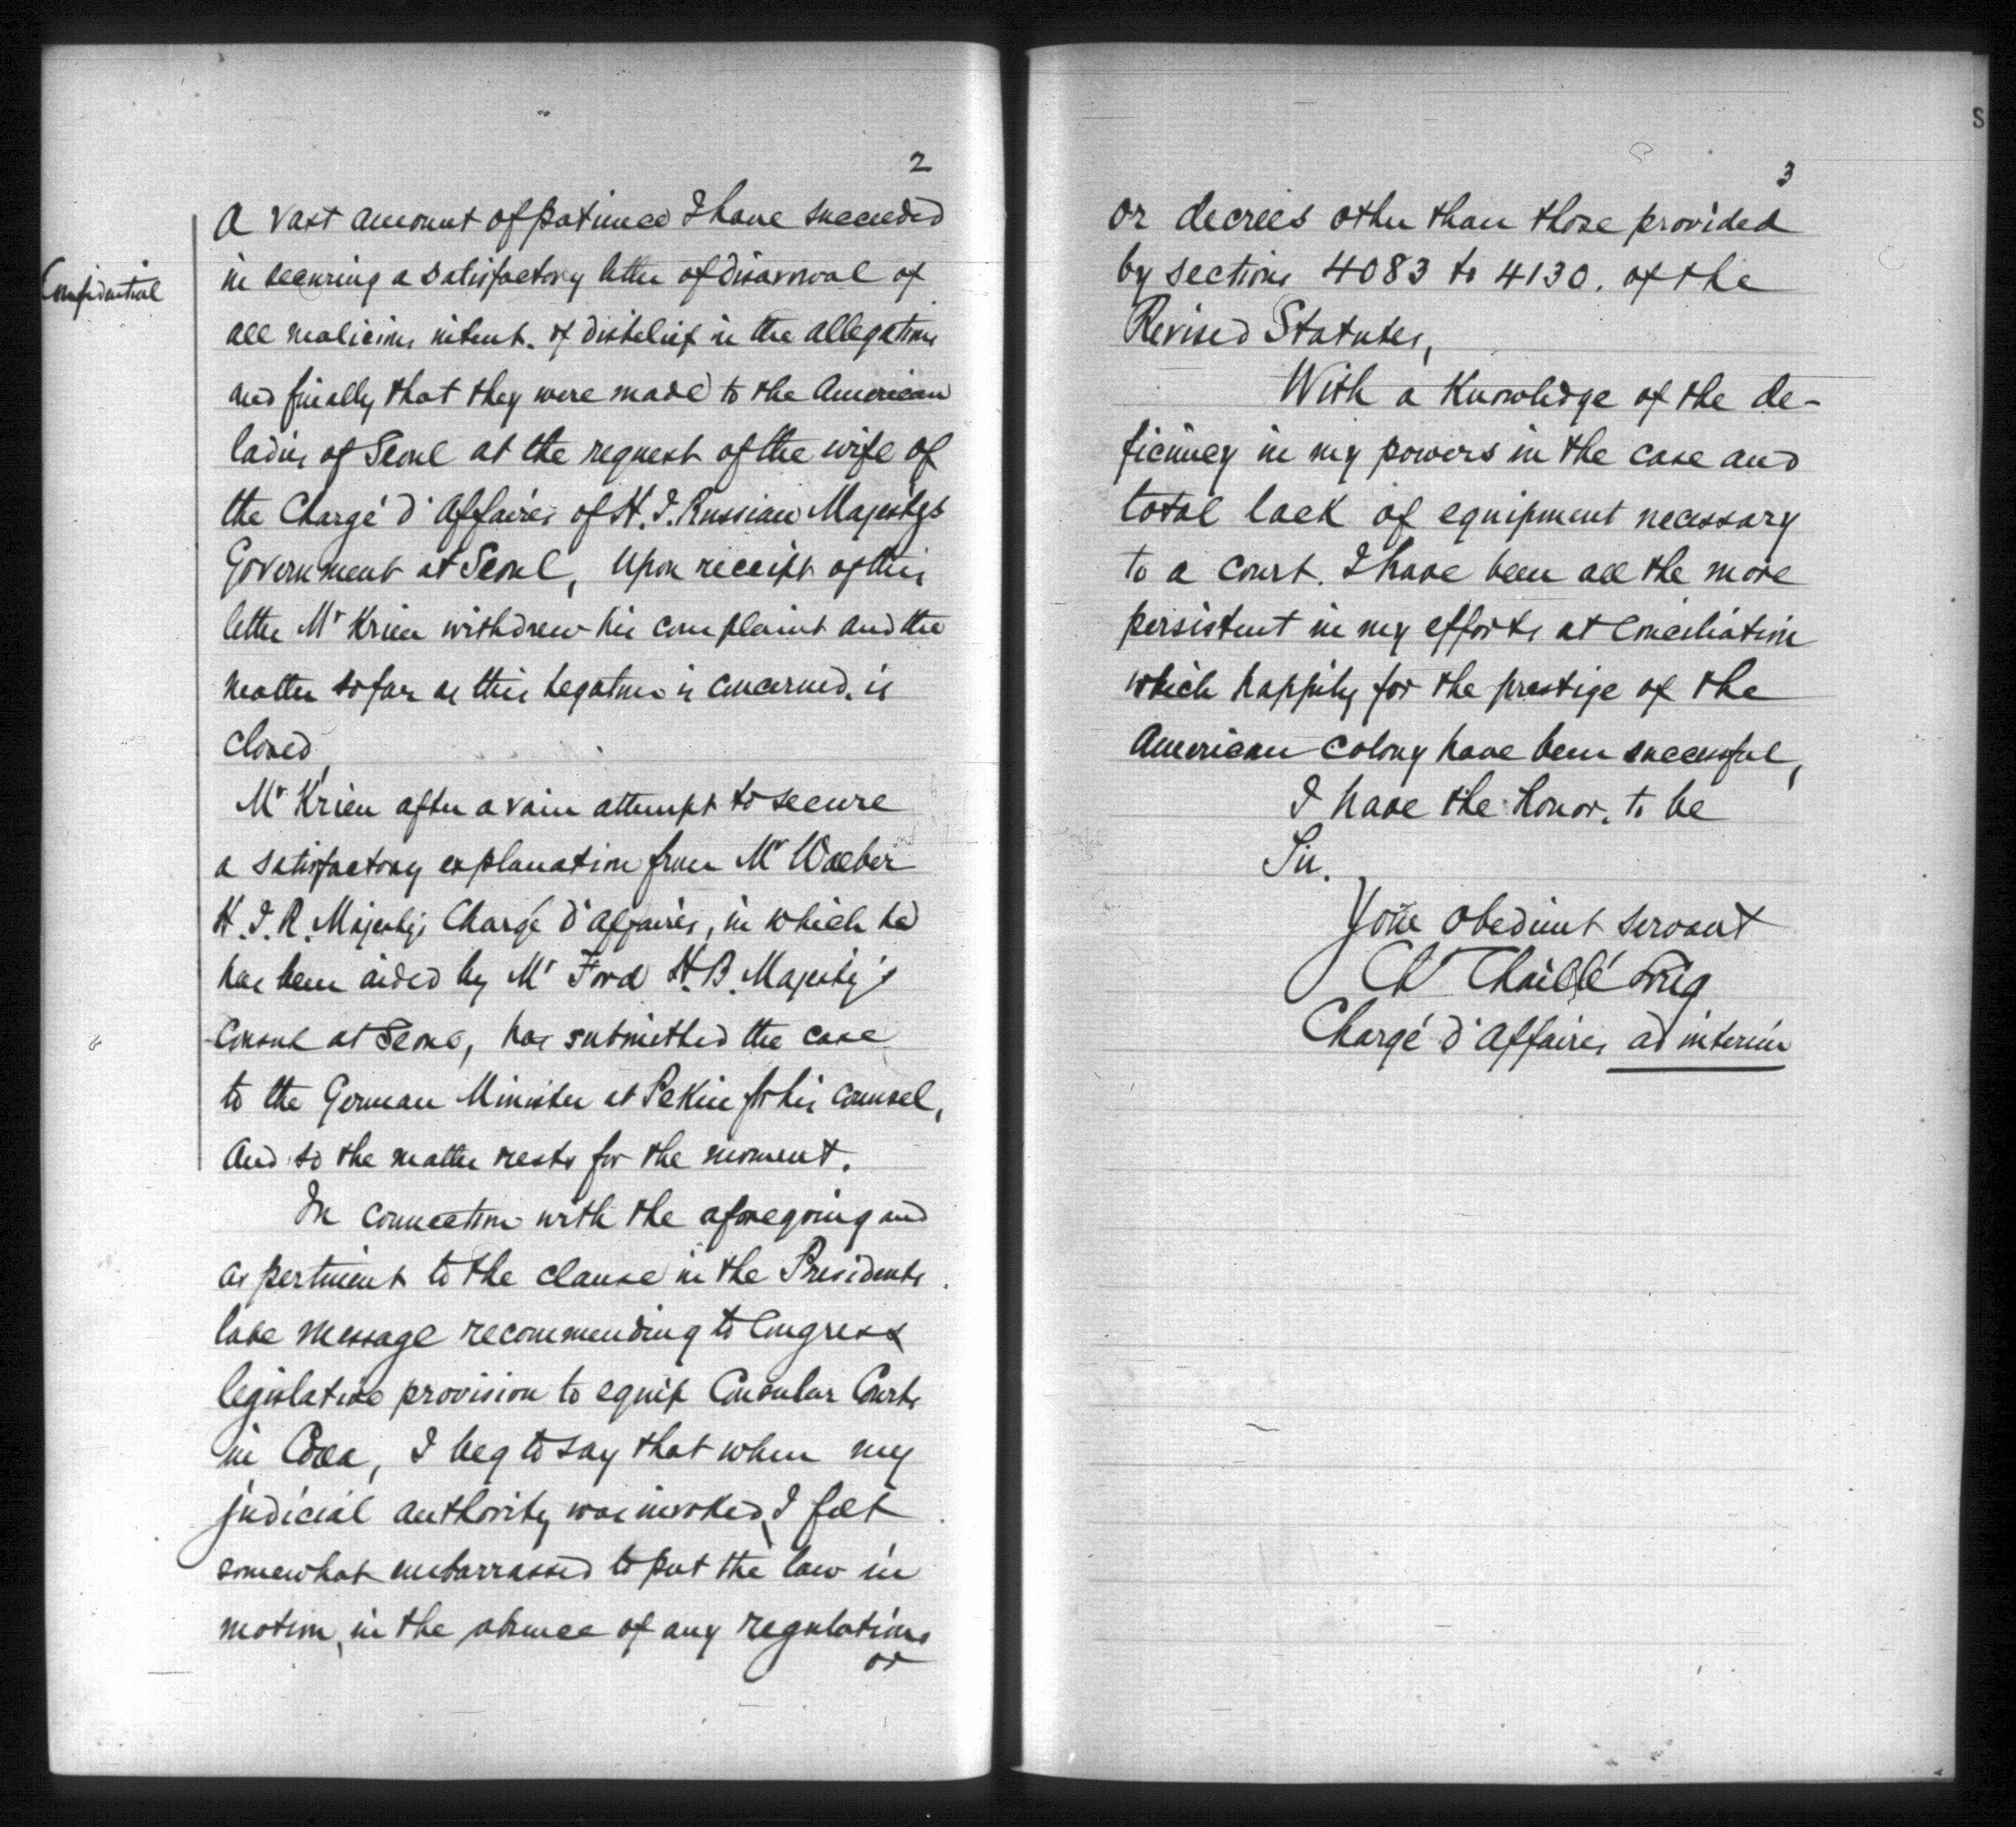 2
a vast amount of patience I have succeeded
Confidential
in securing a satisfactory letter of disavowal of
all malicious intent. of disbelief in the allegations
and finally that they were made to the American
ladies of Seoul at the request of the wife of
the Chargé d'Affaires of H.I. Russian Majesty's
Government at Seoul, Upon receipt of this
letter Mr Krien withdrew his complaint and the
matter so far as this legation is concerned, is
closed,
Mr Krien after a vain attempt to secure
a satisfactory explanation from Mr Waeber
H.I.R. Majesty's Chargé d'affaires, in which he
has been aided by Mr Ford H.B. Majesty's
Consul at Seoul, has submitted the case
to the German Minister at Pekin for his counsel,
and so the matter rests for the moment.
In connection with the aforegoing and
as pertinent to the clause in the Presidents
late message recommending to Congress
legislative provision to equip Consular Courts
in Corea, I beg to say that when my
judicial authority was invoked, I felt
somewhat embarrassed to put the law in
motion, in the absence of any regulations
or
3
or decrees other than those provided
by sections 4083 to 4130. of the
Revised Statutes,
With a Knowledge of the de-
ficiency in my powers in the case and
total lack of equipment necessary
to a court. I have been all the more
persistent in my efforts at conciliation
which happily for the prestige of the
American colony have been successful,
I have the honor. to be
Sir.
Your obedient servant
Ch Chaillé Long
Chargé d'Affaires ad interim
S